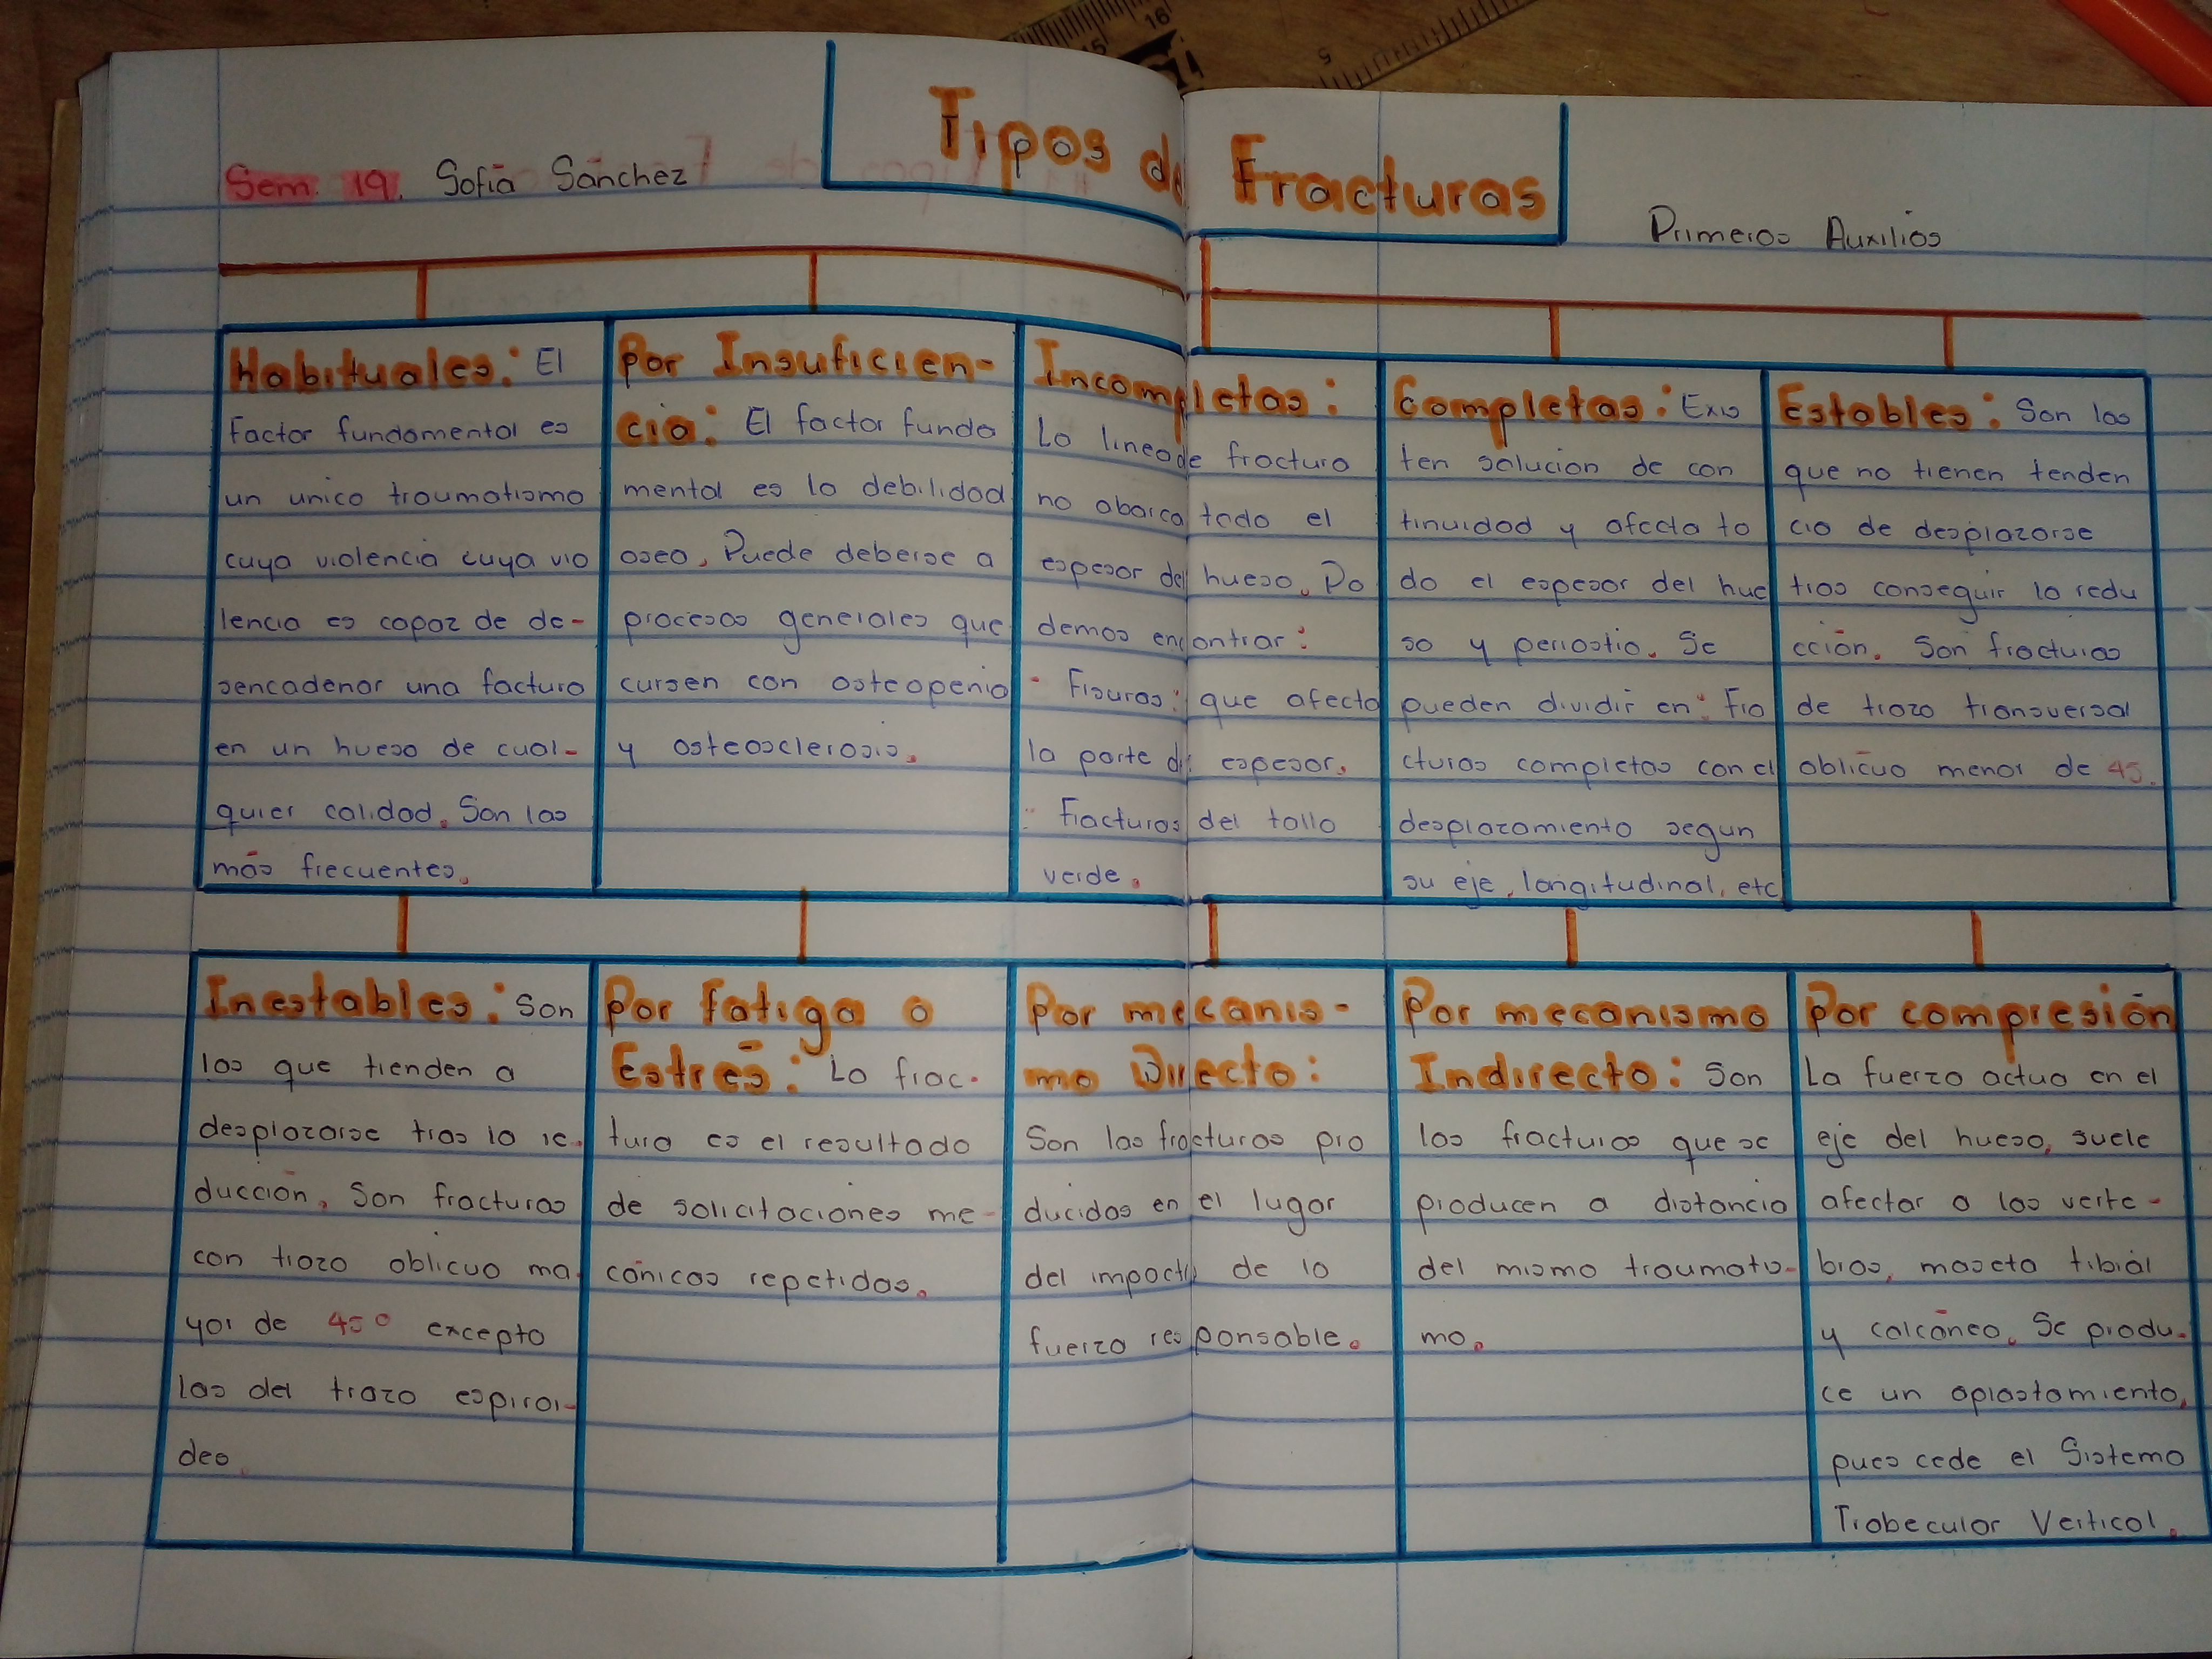 Tipos de Fracturas
Sem. 19. Sofía Sánchez
Primeros Auxilios
Habituales: El
Factor fundamental es
un unico traumatismo
cuya violencia cuya vio
lencia es capaz de de-
sencadenar una factura
en un hueso de cual-
quier calidad. Son las
más frecuentes.
Por Insuficien-
cia: El factor funda
mental es la debilidad
osea. Puede deberse a
procesos generales que
cursen con osteopenia
y osteosclerosis.
Incompletas:
La linea de fractura
no abarca todo el
espesor del hueso. Po
demos encontrar:
- Fisuras: que afecta
la parte del espesor.
- Fracturas del tallo
verde.
Completas: Exis
ten solucion de con
tinuidad y afecta to
do el espesor del hue
so y periostio. Se
pueden dividir en: Fra
cturas completas con el
desplazamiento segun
su eje, longitudinal, etc
Estables: Son las
que no tienen tenden
cia de desplazarse
tras conseguir la redu
cción. Son fracturas
de trazo transversal
oblicuo menor de 45.
Inestables: Son
las que tienden a
desplazarse tras la re-
ducción. Son fracturas
con trazo oblicuo ma
yor de 45° excepto
las del trazo espiroi-
deo.
Por fatiga o
Estrés: La frac-
tura es el resultado
de solicitaciones me-
cánicas repetidas.
Por mecanis-
mo Directo:
Son las fracturas pro
ducidas en el lugar
del impacto de la
fuerza responsable.
Por mecanismo
Indirecto: Son
las fracturas que se
producen a distancia
del mismo traumatis-
mo.
Por compresión
La fuerza actua en el
eje del hueso, suele
afectar a las verte-
bras, maseta tibial
y calcáneo. Se produ-
ce un aplastamiento,
pues cede el Sistema
Trabecular Vertical.